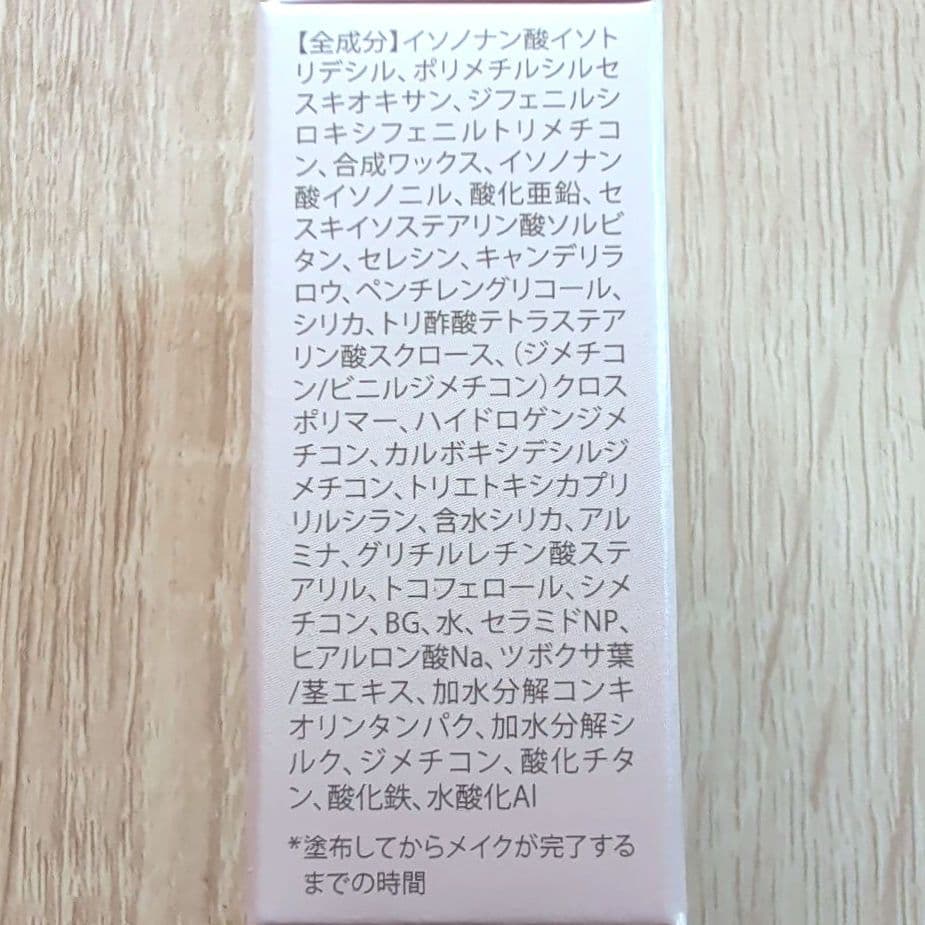 【全成分】イソノナン酸イソト
リデシル、ポリメチルシルセ
スキオキサン、ジフェニルシ
ロキシフェニルトリメチコ
ン、合成ワックス、イソノナン
酸イソノニル、酸化亜鉛、セ
スキイソステアリン酸ソルビ
タン、セレシン、キャンデリラ
ロウ、ペンチレングリコール、
シリカ、トリ酢酸テトラステア
リン酸スクロース、(ジメチコ
ン/ビニルジメチコン)クロス
ポリマー、ハイドロゲンジメ
チコン、カルボキシデシルジ
メチコン、トリエトキシカプリ
リルシラン、含水シリカ、アル
ミナ、グリチルレチン酸ステ
アリル、トコフェロール、シメ
チコン、BG、水、セラミドNP、
ヒアルロン酸Na、ツボクサ葉
/茎エキス、加水分解コンキ
オリンタンパク、加水分解シ
ルク、ジメチコン、酸化チタ
ン、酸化鉄、水酸化Al
*塗布してからメイクが完了する
までの時間